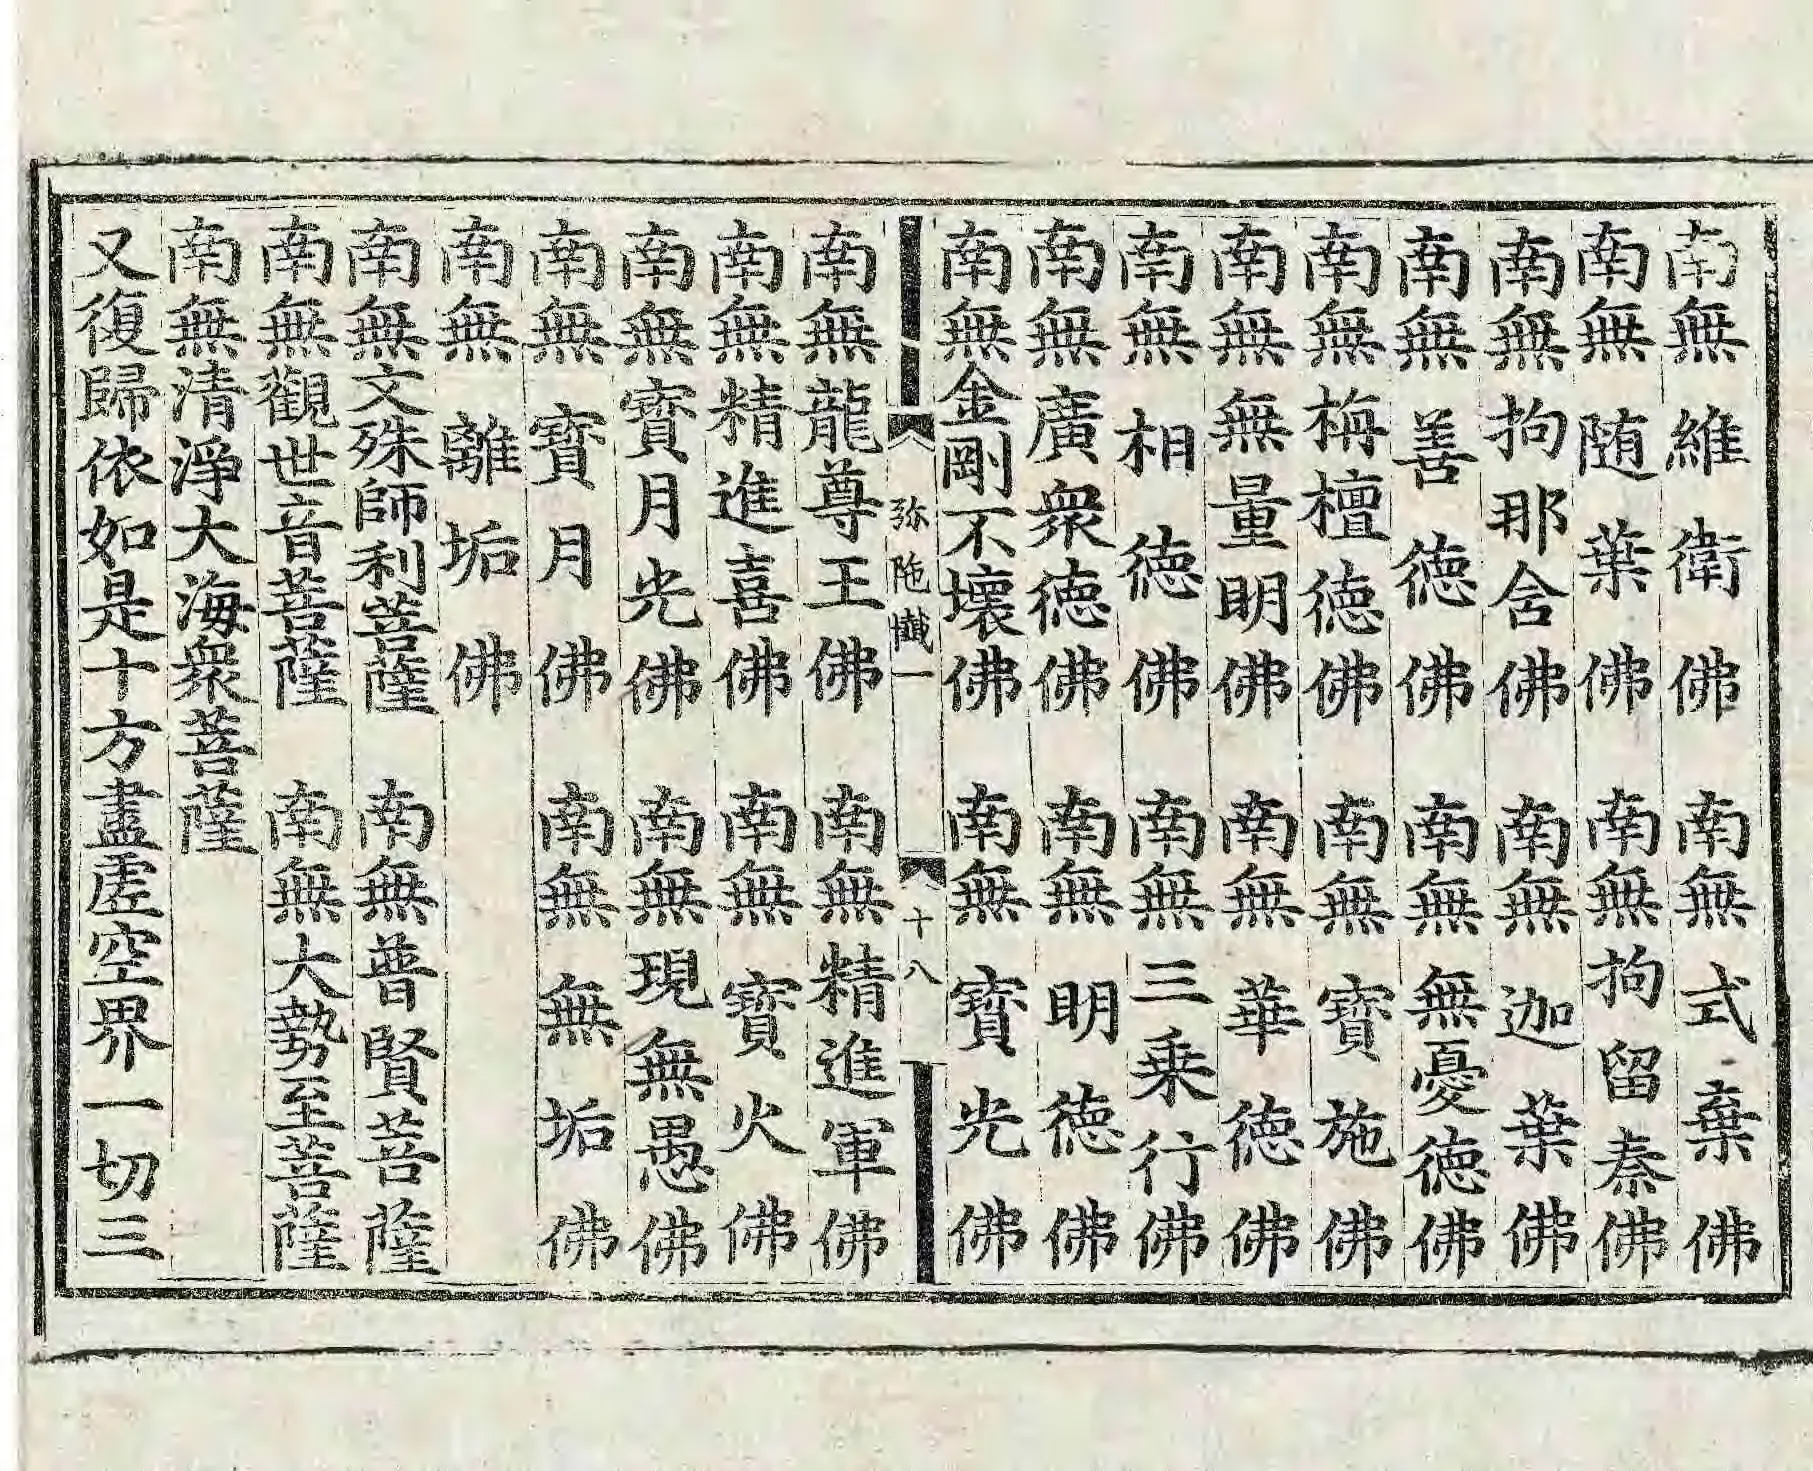 南無維衛佛　南無式棄佛
南無随葉佛　南無拘留秦佛
南無拘那含佛　南無迦葉佛
南無善德佛　南無無憂德佛
南無栴檀德佛　南無寶施佛
南無無量明佛　南無華德佛
南無相德佛　南無三乗行佛
南無廣衆德佛　南無明德佛
南無金剛不壞佛　南無寶光佛
弥陁懺一　十八
南無龍尊王佛　南無精進軍佛
南無精進喜佛　南無寶火佛
南無寶月光佛　南無現無愚佛
南無寶月佛　南無無垢佛
南無離垢佛
南無文殊師利菩薩　南無普賢菩薩
南無觀世音菩薩　南無大勢至菩薩
南無清淨大海衆菩薩
又復歸依如是十方盡虛空界一切三